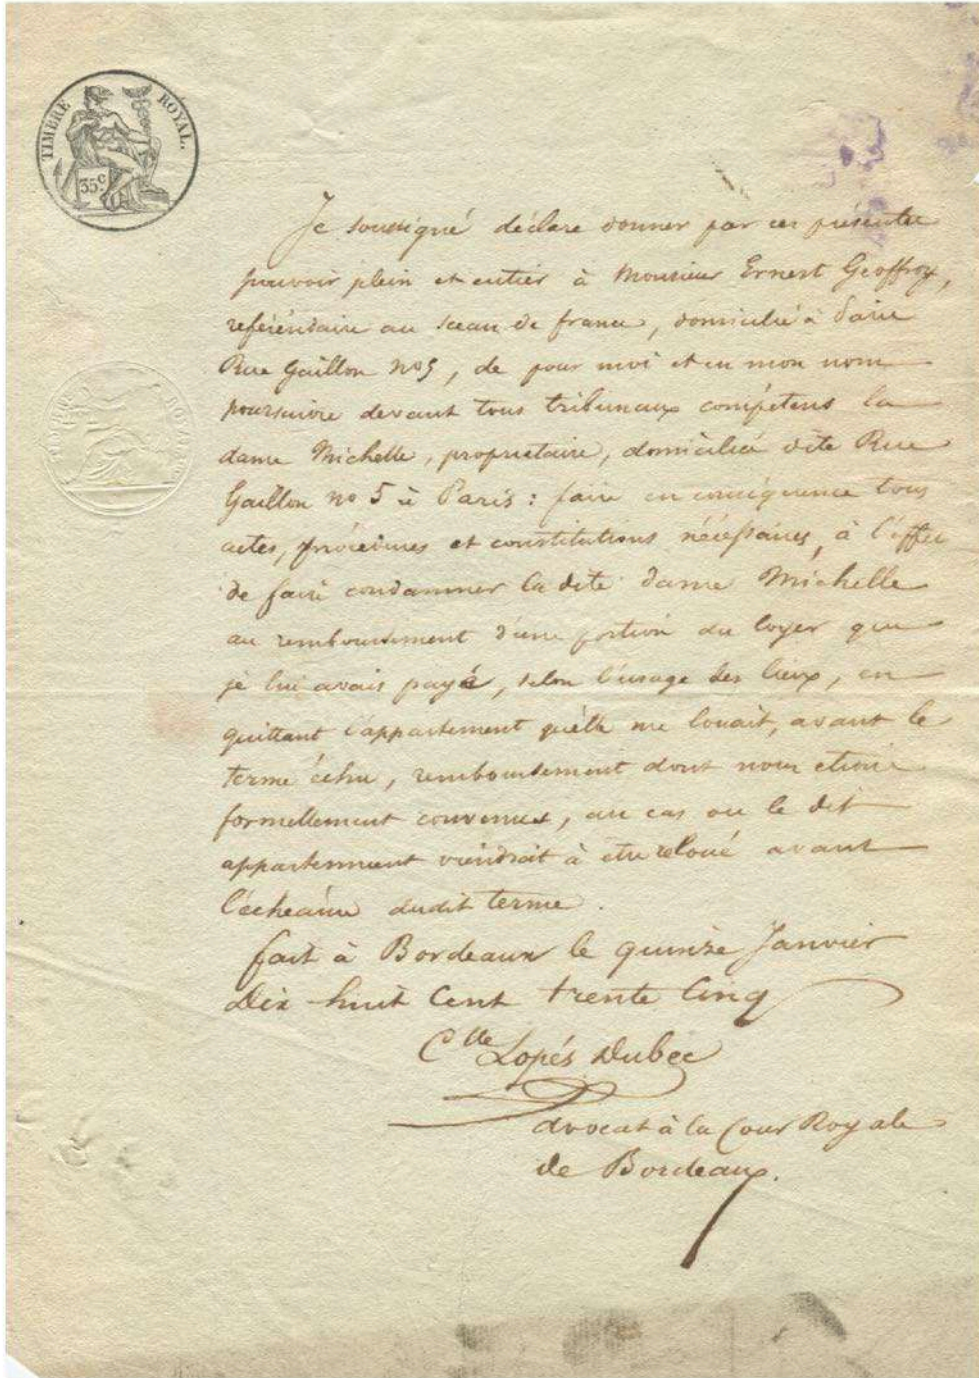 TIMBRE ROYAL.
35 c
Je soussigné déclare donner par ces présentes
pouvoir plein et entier à Monsieur Ernest Geoffroy,
référendaire au sceau de france, domicilié à Paris
Rue Gaillon nº 5, de pour moi et en mon nom
poursuivre devant tous tribunaux compétens la
dame Michelle, propriétaire, domiciliée dite Rue
Gaillon nº 5 à Paris : faire en conséquence tous
actes, procédures et constitutions nécéssaires, à l'effet
de faire condamner la dite dame Michelle
au remboursement d'une portion du loyer que
je lui avais payé, selon l'usage des lieux, en
quittant l'appartement qu'elle me louait, avant le
terme échu, remboursement dont nous etions
formellement convenus, au cas ou le dit
appartement viendrait à etre reloué avant
l'écheance dudit terme.
fait à Bordeaux le quinze Janvier
Dix-huit Cent trente Cinq
C^lle Lopés Dubec
avocat à la Cour Royale
de Bordeaux.